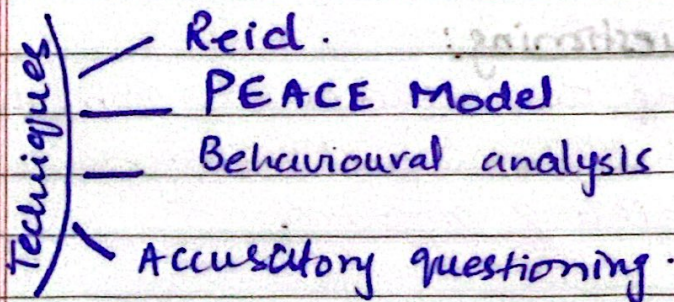 Techniques
Reid.
PEACE Model
Behavioural analysis
Accusatory questioning.